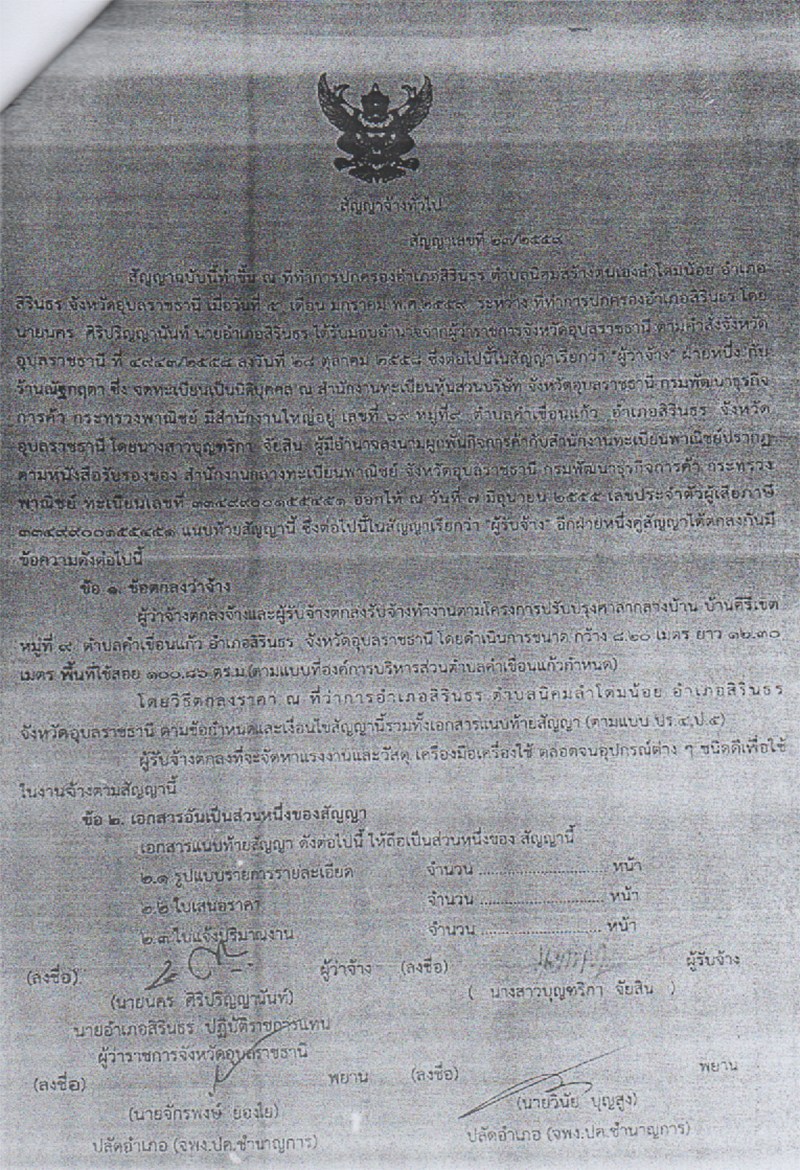 สัญญาจ้างทั่วไป
สัญญาเลขที่ ๒๓/๒๕๕๘
สัญญาฉบับนี้ทำขึ้น ณ ที่ทำการปกครองอำเภอสิรินธร ตำบลนิคมสร้างตนเองลำโดมน้อย อำเภอ
สิรินธร จังหวัดอุบลราชธานี เมื่อวันที่ ๕ เดือน มกราคม พ.ศ.๒๕๕๙ ระหว่าง ที่ทำการปกครองอำเภอสิรินธร โดย
นายนคร ศิริปริญญานันท์ นายอำเภอสิรินธร ได้รับมอบอำนาจจากผู้ว่าราชการจังหวัดอุบลราชธานี ตามคำสั่งจังหวัด
อุบลราชธานี ที่ ๔๙๔๓/๒๕๕๘ ลงวันที่ ๒๘ ตุลาคม ๒๕๕๘ ซึ่งต่อไปนี้ในสัญญาเรียกว่า "ผู้ว่าจ้าง" ฝ่ายหนึ่ง กับ
ร้านณัฐกฤตา ซึ่ง จดทะเบียนเป็นนิติบุคคล ณ สำนักงานทะเบียนหุ้นส่วนบริษัท จังหวัดอุบลราชธานี กรมพัฒนาธุรกิจ
การค้า กระทรวงพาณิชย์ มีสำนักงานใหญ่อยู่ เลขที่ ๖๙ หมู่ที่๙ ตำบลคำเขื่อนแก้ว อำเภอสิรินธร จังหวัด
อุบลราชธานี โดยนางสาวบุญฑริกา จัยสิน ผู้มีอำนาจลงนามผูกพันกิจการค้ากับสำนักงานทะเบียนพาณิชย์ปรากฏ
ตามหนังสือรับรองของ สำนักงานกลางทะเบียนพาณิชย์ จังหวัดอุบลราชธานี กรมพัฒนาธุรกิจการค้า กระทรวง
พาณิชย์ ทะเบียนเลขที่ ๓๓๔๙๙๐๐๑๕๕๔๕๑ ออกให้ ณ วันที่ ๗ มิถุนายน ๒๕๕๕ เลขประจำตัวผู้เสียภาษี
๓๓๔๙๙๐๐๑๕๕๔๕๑ แนบท้ายสัญญานี้ ซึ่งต่อไปนี้ในสัญญาเรียกว่า "ผู้รับจ้าง" อีกฝ่ายหนึ่งคู่สัญญาได้ตกลงกันมี
ข้อความดังต่อไปนี้
ข้อ ๑. ข้อตกลงว่าจ้าง
ผู้ว่าจ้างตกลงจ้างและผู้รับจ้างตกลงรับจ้างทำงานตามโครงการปรับปรุงศาลากลางบ้าน บ้านคีรีเขต
หมู่ที่ ๙ ตำบลคำเขื่อนแก้ว อำเภอสิรินธร จังหวัดอุบลราชธานี โดยดำเนินการขนาด กว้าง ๘.๒๐ เมตร ยาว ๑๒.๓๐
เมตร พื้นที่ใช้สอย ๑๐๐.๘๖ ตร.ม.(ตามแบบที่องค์การบริหารส่วนตำบลคำเขื่อนแก้วกำหนด)
โดยวิธีตกลงราคา ณ ที่ว่าการอำเภอสิรินธร ตำบลนิคมลำโดมน้อย อำเภอสิรินธร
จังหวัดอุบลราชธานี ตามข้อกำหนดและเงื่อนไขสัญญานี้รวมทั้งเอกสารแนบท้ายสัญญา (ตามแบบ ปร.๔,ป.๕)
ผู้รับจ้างตกลงที่จะจัดหาแรงงานและวัสดุ เครื่องมือเครื่องใช้ ตลอดจนอุปกรณ์ต่าง ๆ ชนิดดีเพื่อใช้
ในงานจ้างตามสัญญานี้
ข้อ ๒. เอกสารอันเป็นส่วนหนึ่งของสัญญา
เอกสารแนบท้ายสัญญา ดังต่อไปนี้ ให้ถือเป็นส่วนหนึ่งของ สัญญานี้
๒.๑ รูปแบบรายการรายละเอียด จำนวน ............................ หน้า
๒.๒ ใบเสนอราคา จำนวน ............................ หน้า
๒.๓ ใบแจ้งปริมาณงาน จำนวน ............................ หน้า
(ลงชื่อ) ผู้ว่าจ้าง (ลงชื่อ) ผู้รับจ้าง
(นายนคร ศิริปริญญานันท์) ( นางสาวบุญฑริกา จัยสิน )
นายอำเภอสิรินธร ปฏิบัติราชการแทน
ผู้ว่าราชการจังหวัดอุบลราชธานี
(ลงชื่อ) พยาน (ลงชื่อ) พยาน
(นายจักรพงษ์ ยองใย) (นายวินัย บุญสูง)
ปลัดอำเภอ (จพง.ปค.ชำนาญการ) ปลัดอำเภอ (จพง.ปค.ชำนาญการ)